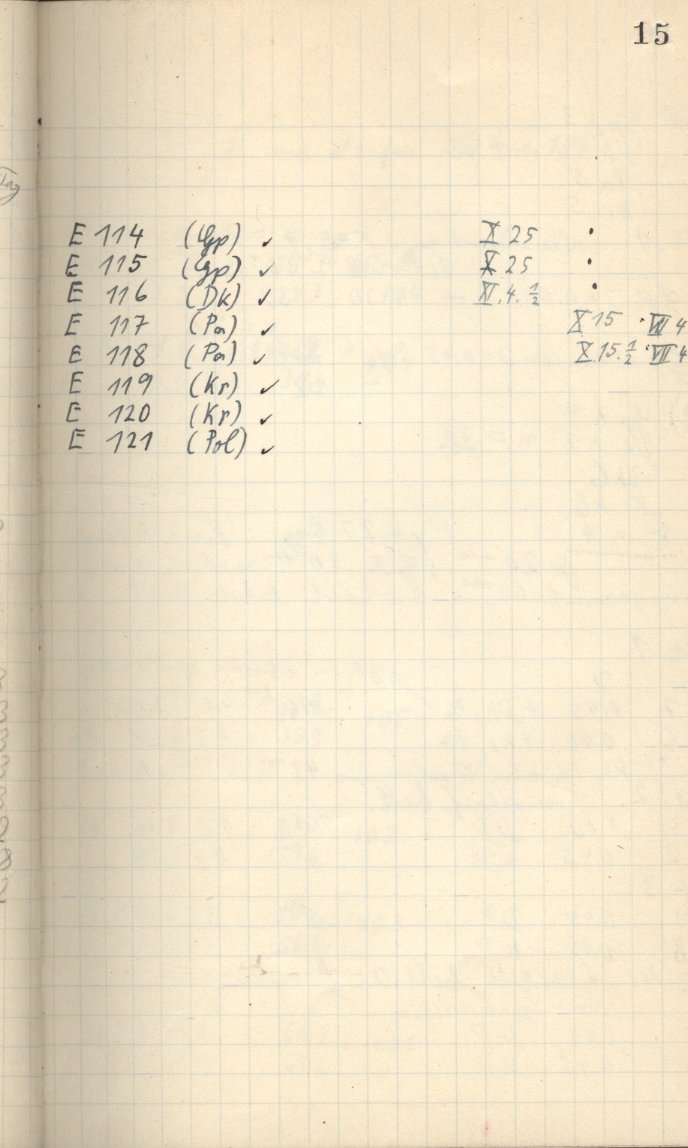 15
Tag
E 114 (Gp) ✓ X 25 •
E 115 (Gp) ✓ X 25 •
E 116 (Dk) ✓ XI. 4. ½ •
E 117 (Pa) ✓ X 15 • VII 4
E 118 (Pa) ✓ X. 15. ½ • VII 4
E 119 (Kr) ✓
E 120 (Kr) ✓
E 121 (Pol) ✓